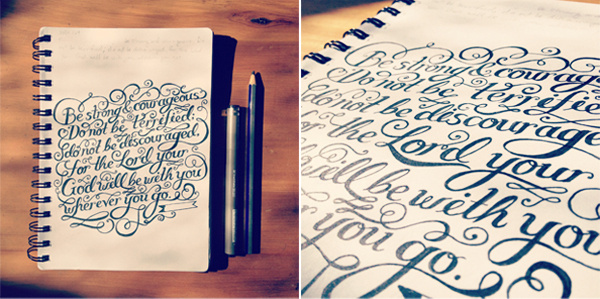 Be strong & courageous.
Do not be terrified;
do not be discouraged,
for the Lord your
God will be with you
wherever you go.
Be strong & courageous
Do not be terrified
do not be discourage
for the Lord your
will be with you
you go.